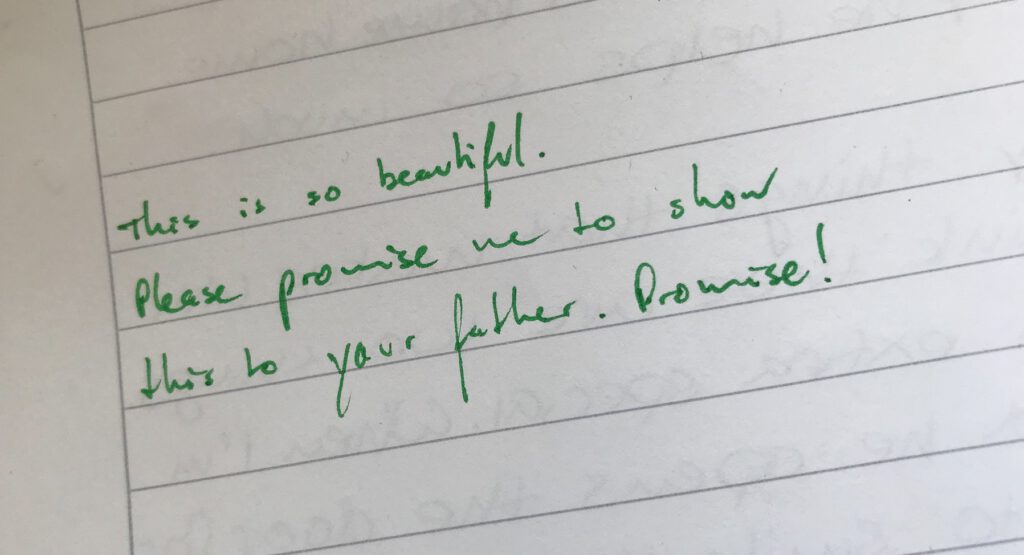 This is so beautiful.
Please promise me to show
this to your father. Promise!